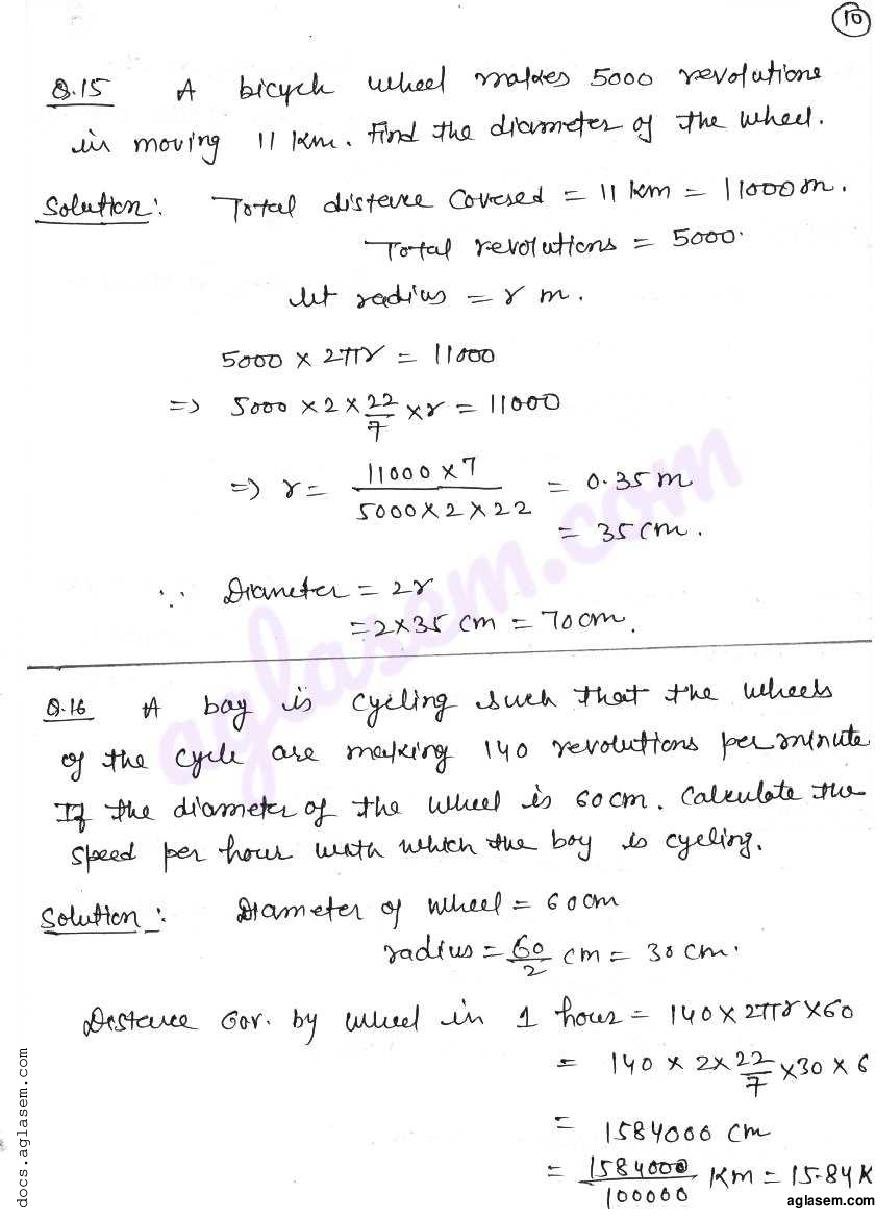 10
Q.15 A bicycle wheel makes 5000 revolutions
in moving 11 km. Find the diameter of the wheel.
Solution: Total distance covered = 11 km = 11000 m.
Total revolutions = 5000.
let radius = r m.
5000 × 2πr = 11000
=> 5000 × 2 × 22/7 × r = 11000
=> r = 11000 × 7 / 5000 × 2 × 22 = 0.35 m
= 35 cm.
∵ Diameter = 2r
= 2 × 35 cm = 70 cm.
Q.16 A boy is cycling such that the wheels
of the cycle are making 140 revolutions per minute
If the diameter of the wheel is 60 cm. Calculate the
speed per hour with which the boy is cycling.
Solution:- Diameter of wheel = 60 cm
radius = 60/2 cm = 30 cm.
Distance cov. by wheel in 1 hour = 140 × 2πr × 60
= 140 × 2 × 22/7 × 30 × 6
= 1584000 cm
= 1584000/100000 Km = 15.84 K
aglasem.com
docs.aglasem.com
aglasem.com